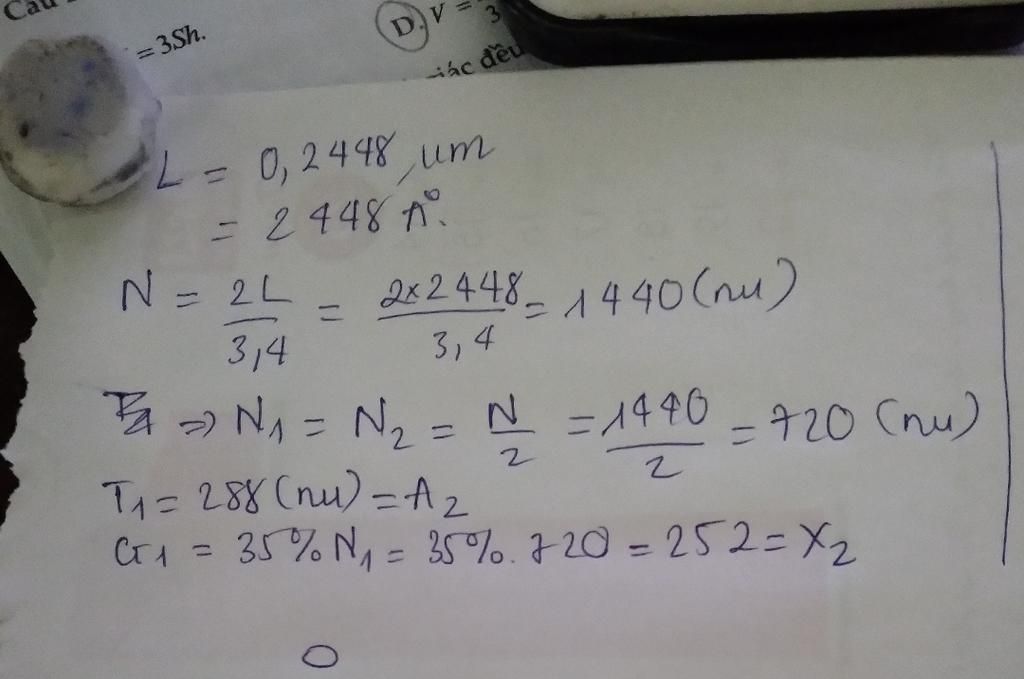 = 3Sh.
D. V =
3
giác đều
L = 0,2448 µm
= 2448 A°.
N = 2L/3,4 = 2×2448/3,4 = 1440 (nu)
=> N1 = N2 = N/2 = 1440/2 = 720 (nu)
T1 = 288 (nu) = A2
G1 = 35% N1 = 35%. 720 = 252 = X2